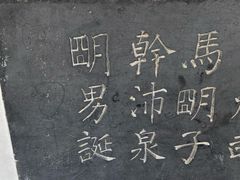 馬明子
幹沛泉
明男誕